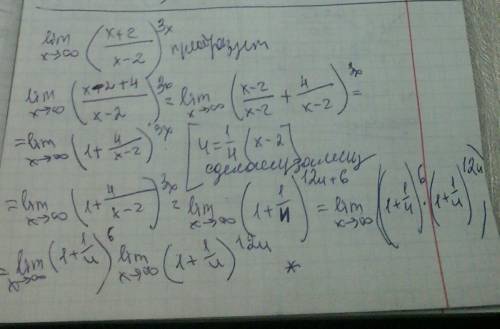 lim x→∞ (x+2 / x-2)^3x преобразуем
lim x→∞ (x-2+4 / x-2)^3x = lim x→∞ (x-2 / x-2 + 4 / x-2)^3x =
= lim x→∞ (1 + 4 / x-2)^3x [u = 1/4 (x-2)]
сделаем замену
= lim x→∞ (1 + 4 / x-2)^3x = lim x→∞ (1 + 1/u)^12u+6 = lim x→∞ ((1 + 1/u)^6 · (1 + 1/u)^12u)
= lim x→∞ (1 + 1/u)^6 lim x→∞ (1 + 1/u)^12u *